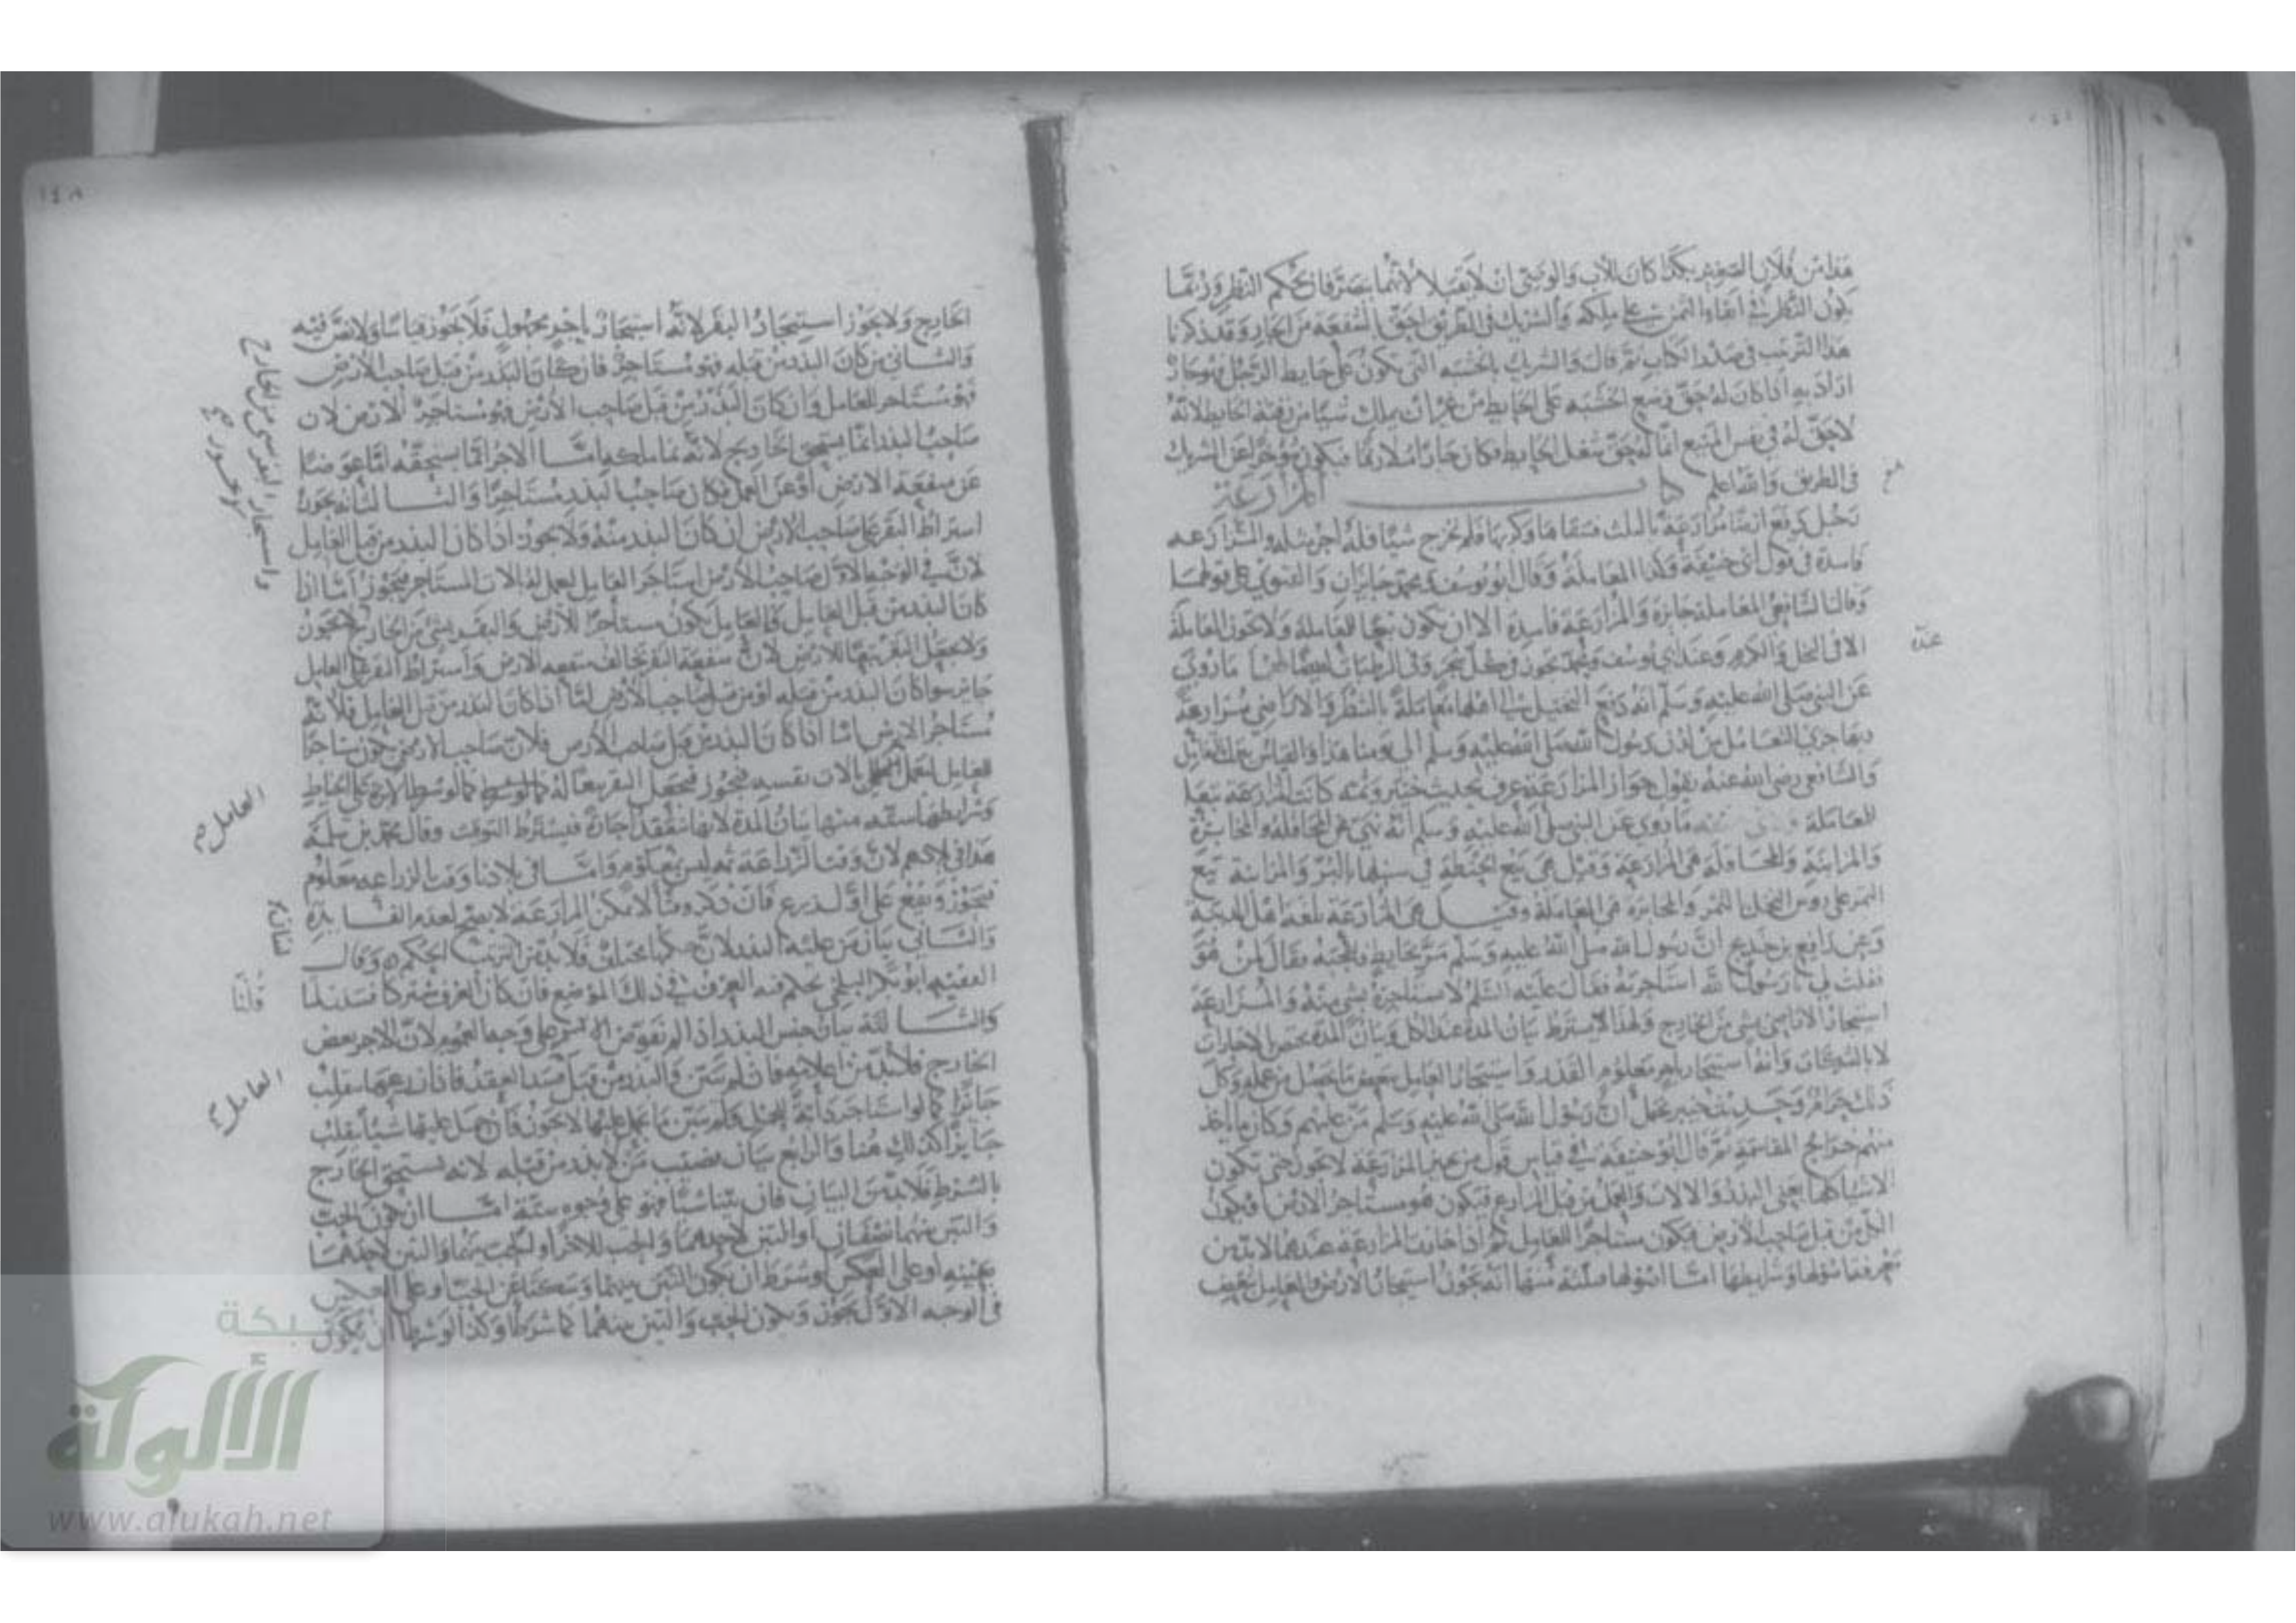 هذا من فلان الصغير بكذا كان للأب والوصي ان لا يقبلا لأنهما يتصرفان بحكم النظر وربما
يكون النظر في ابقاء الثمن على ملكه والشريك في الطريق احق بالشفعة من الجار وقد ذكرنا
هذا الترتيب في هذا الكتاب ثم قال والشريك بالخشبه التي تكون على حايط الرجل فهو جار
اراد به اذا كان له حق وضع الخشبه على الحايط من غير ان يملك شيا من رقبة الحايط لانه
لا حق له في نفس المبيع انما له حق شغل الحايط فكان جارا ملازما فيكون مؤخرا عن الشريك
في الطريق والله اعلم كتاب المزارعة
رجل دفع ارضا مزارعة بالثلث فسقاها وكربها فلم تخرج شيا فله اجر مثله والمزارعه
فاسدة في قول ابي حنيفة وكذا المعاملة وقال ابو يوسف ومحمد جايزان والفتوى على قولهما
وقال الشافعي المعاملة جايزة والمزارعة فاسدة الا ان يكون تبعا للمعاملة ولا تجوز المعاملة
عنده
الا في النخل والكرم وعند ابي يوسف ومحمد تجوز في كل شجر وفي الرطبات ايضا لهما ما روي
عن النبي صلى الله عليه وسلم انه دفع النخيل الى اهلها معاملة بالشطر والاراضي مزارعة
بها جرى التعامل من لدن رسول الله صلى الله عليه وسلم الى يومنا هذا والقياس يترك بالتعامل
والشافعي رضي الله عنه يقول جواز المزارعة عرف بحديث خيبر وثمه كانت المزارعة تبعا
للمعاملة ما روي عن النبي صلى الله عليه وسلم انه نهى عن المحاقلة والمخابرة
والمزابنة والمحاقلة هي المزارعة وقيل هي بيع الحنطة في سنبلها بالبر والمزابنة بيع
الثمر على روس النخل بالتمر والمخابرة هي المعاملة وقيل هي المزارعة بلغة اهل المدينة
وعن رافع بن خديج ان رسول الله صلى الله عليه وسلم مر بحايط فاعجبه فقال لمن هو
فقلت لي يا رسول الله استاجرته فقال عليه السلم لا تستاجره بشي منه والمزارعة
استيجار الاراضي بشي من الخارج ولهذا لا يشترط بيان المدة عند الكل وبيان المدة يختص بالاجارات
لا بالشركات وانها استيجار باجر معلوم القدر واستيجار العامل ببعض ما يحصل من عمله وكل
ذلك حرام وحديث خيبر يحمل ان رسول الله صلى الله عليه وسلم من عليهم وكان ما ياخذ
منهم خراج المقاسمة ثم قال ابو حنيفة في قياس قول من يجيز المزارعة لا تجوز حتى تكون
الاشيا كلها يعني البذر والالات والعمل من قبل المزارع فيكون هو مستاجر الارض او يكون
الكل من قبل صاحب الارض فيكون مستاجرا للعامل ثم اذا جازت المزارعة عندهما لا بد من
معرفة اصولها وشرايطها اما اصولها منها انه يجوز استيجار الارض والعامل ببعض
١٤٨
الخارج ولا يجوز استيجار البقر لانه استيجار باجر مجهول فلا يجوز قياسا ولا نص فيه
والثاني من كان البذر من قبله فهو مستاجر فان كان البذر من قبل صاحب الارض
فهو مستاجر للعامل وان كان البذر من قبل صاحب الارض فهو مستاجر الارض لان
صاحب البذر انما يستحق الخارج لانه نما ملكه اما الاجر انما يستحقه اما عوضا
عن منفعة الارض او عن العمل فكان صاحب البذر مستاجرا والثالث انه يجوز
اشتراط البقر على صاحب الارض ان كان البذر منه ولا يجوز اذا كان البذر من قبل العامل
لان في الوجه الاول صاحب الارض استاجر العامل ليعمل له بالات المستاجر فيجوز اما اذا
كان البذر من قبل العامل فالعامل يكون مستاجرا للارض والبقر بشي من الخارج لا يجوز
ولا يجعل البقر تبعا للارض لان منفعة البقر تخالف منفعه الارض واشتراط البقر على العامل
جايز سوا كان البذر من قبله او من قبل صاحب الارض اما اذا كان البذر من قبل العامل فلانه
مستاجر الارض اما اذا كان البذر من قبل صاحب الارض فلان صاحب الارض يكون مستاجرا
للعامل ليعمل بالات نفسه فيجوز فيجعل البقر تبعا له كالوشرط الابرة على الخياط
وشرايطها ستة منها بيان المدة لانها تنعقد اجارة فيشترط التوقيت وقال محمد بن سلمة
هذا في بلادهم لان وقت الزراعة ثمه ليس بمعلوم واما في بلادنا وقت الزراعه معلوم
فيجوز ويقع على اول زرع فان ذكر وقتا لا يمكن المزارعة لا يصح لعدم الفايدة
والثاني بيان من عليه البذر لان حكمها مختلف فلا بد من ترتيب الحكم وقال
الفقيه ابو بكر البلخي يحكم فيه العرف في ذلك الموضع فان كان العرف مشتركا فسدتا
والثالثة بيان جنس البذر اذا لم يفوض الامر على وجه العموم لان الاجر بعض
الخارج فلا بد من اعلامه فان لم يبين والبذر من قبل فسد العقد فاذا زرعها ينقلب
جائزا كما لو استاجر دابة للحمل ولم يبين ما يحمل عليها لا يجوز فان حمل عليها شيئا ينقلب
جايزا كذلك هنا والرابع بيان نصيب من لا بذر من قبله لانه يستحق الخارج
بالشرط فلا بد من البيان فان بينا شيئا فهو على وجوه ستة اما ان يكون الحب
والتبن بينهما نصفان او التبن لاحدهما والحب للاخر او الحب بينهما والتبن لاحدهما
بعينه او على العكس او شرط ان يكون التبن بينهما وسكتا عن الحب او على العكس
في الوجه الاول يجوز ويكون الحب والتبن بينهما كما شرطا وكذا لو شرطا ان يكون
واستيجار البقر بشي من الخارج
العامل صح
العامل صح
شبكة
الألوكة
www.alukah.net